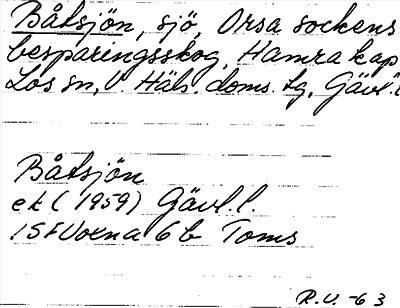 Båtsjön, sjö, Orsa sockens
besparingsskog, Hamra kap
Los sn, V. Häls. doms. tg, Gävl. l
Båtsjön
ek (1959) Gävl. l.
15F Voxna 6 b Toms
R.U. -63